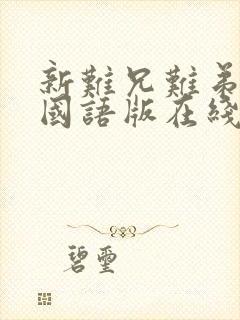 新難兄難弟
國語版在綫
碧璽